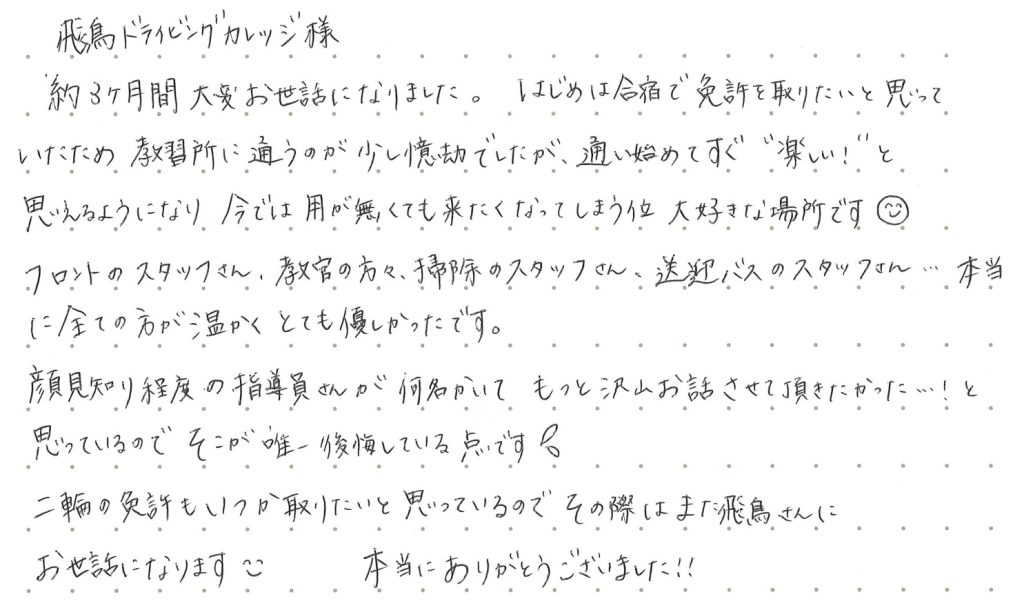 飛鳥ドライビングカレッジ様
約3ヶ月間 大変お世話になりました。 はじめは合宿で免許を取りたいと思って
いたため 教習所に通うのが少し憶劫でしたが、通い始めてすぐ "楽しい!" と
思えるようになり 今では用が無くても来たくなってしまう位 大好きな場所です
フロントのスタッフさん、教官の方々、掃除のスタッフさん、送迎バスのスタッフさん… 本当
に全ての方が温かく とても優しかったです。
顔見知り程度の指導員さんが何名かいて もっと沢山お話させて頂きたかった…!と
思っているので そこが唯一後悔している点です
二輪の免許もいつか取りたいと思っているので その際はまた飛鳥さんに
お世話になります 本当にありがとうございました!!